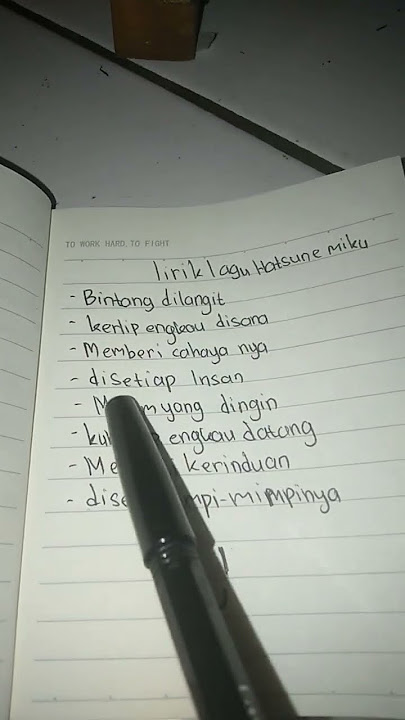 TO WORK HARD, TO FIGHT
lirik lagu Hatsune miku
- Bintang dilangit
- kerlip engkau disana
- Memberi cahaya nya
- disetiap Insan
- yang dingin
- engkau datang
- kerinduan
- mimpinya